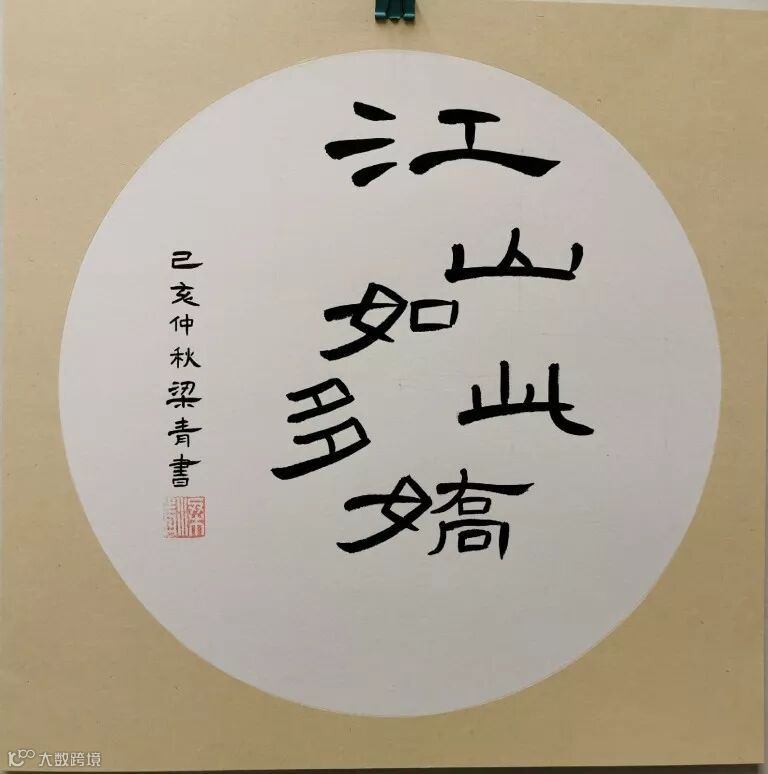 江山如此多嬌
己亥仲秋梁青書
大数跨境